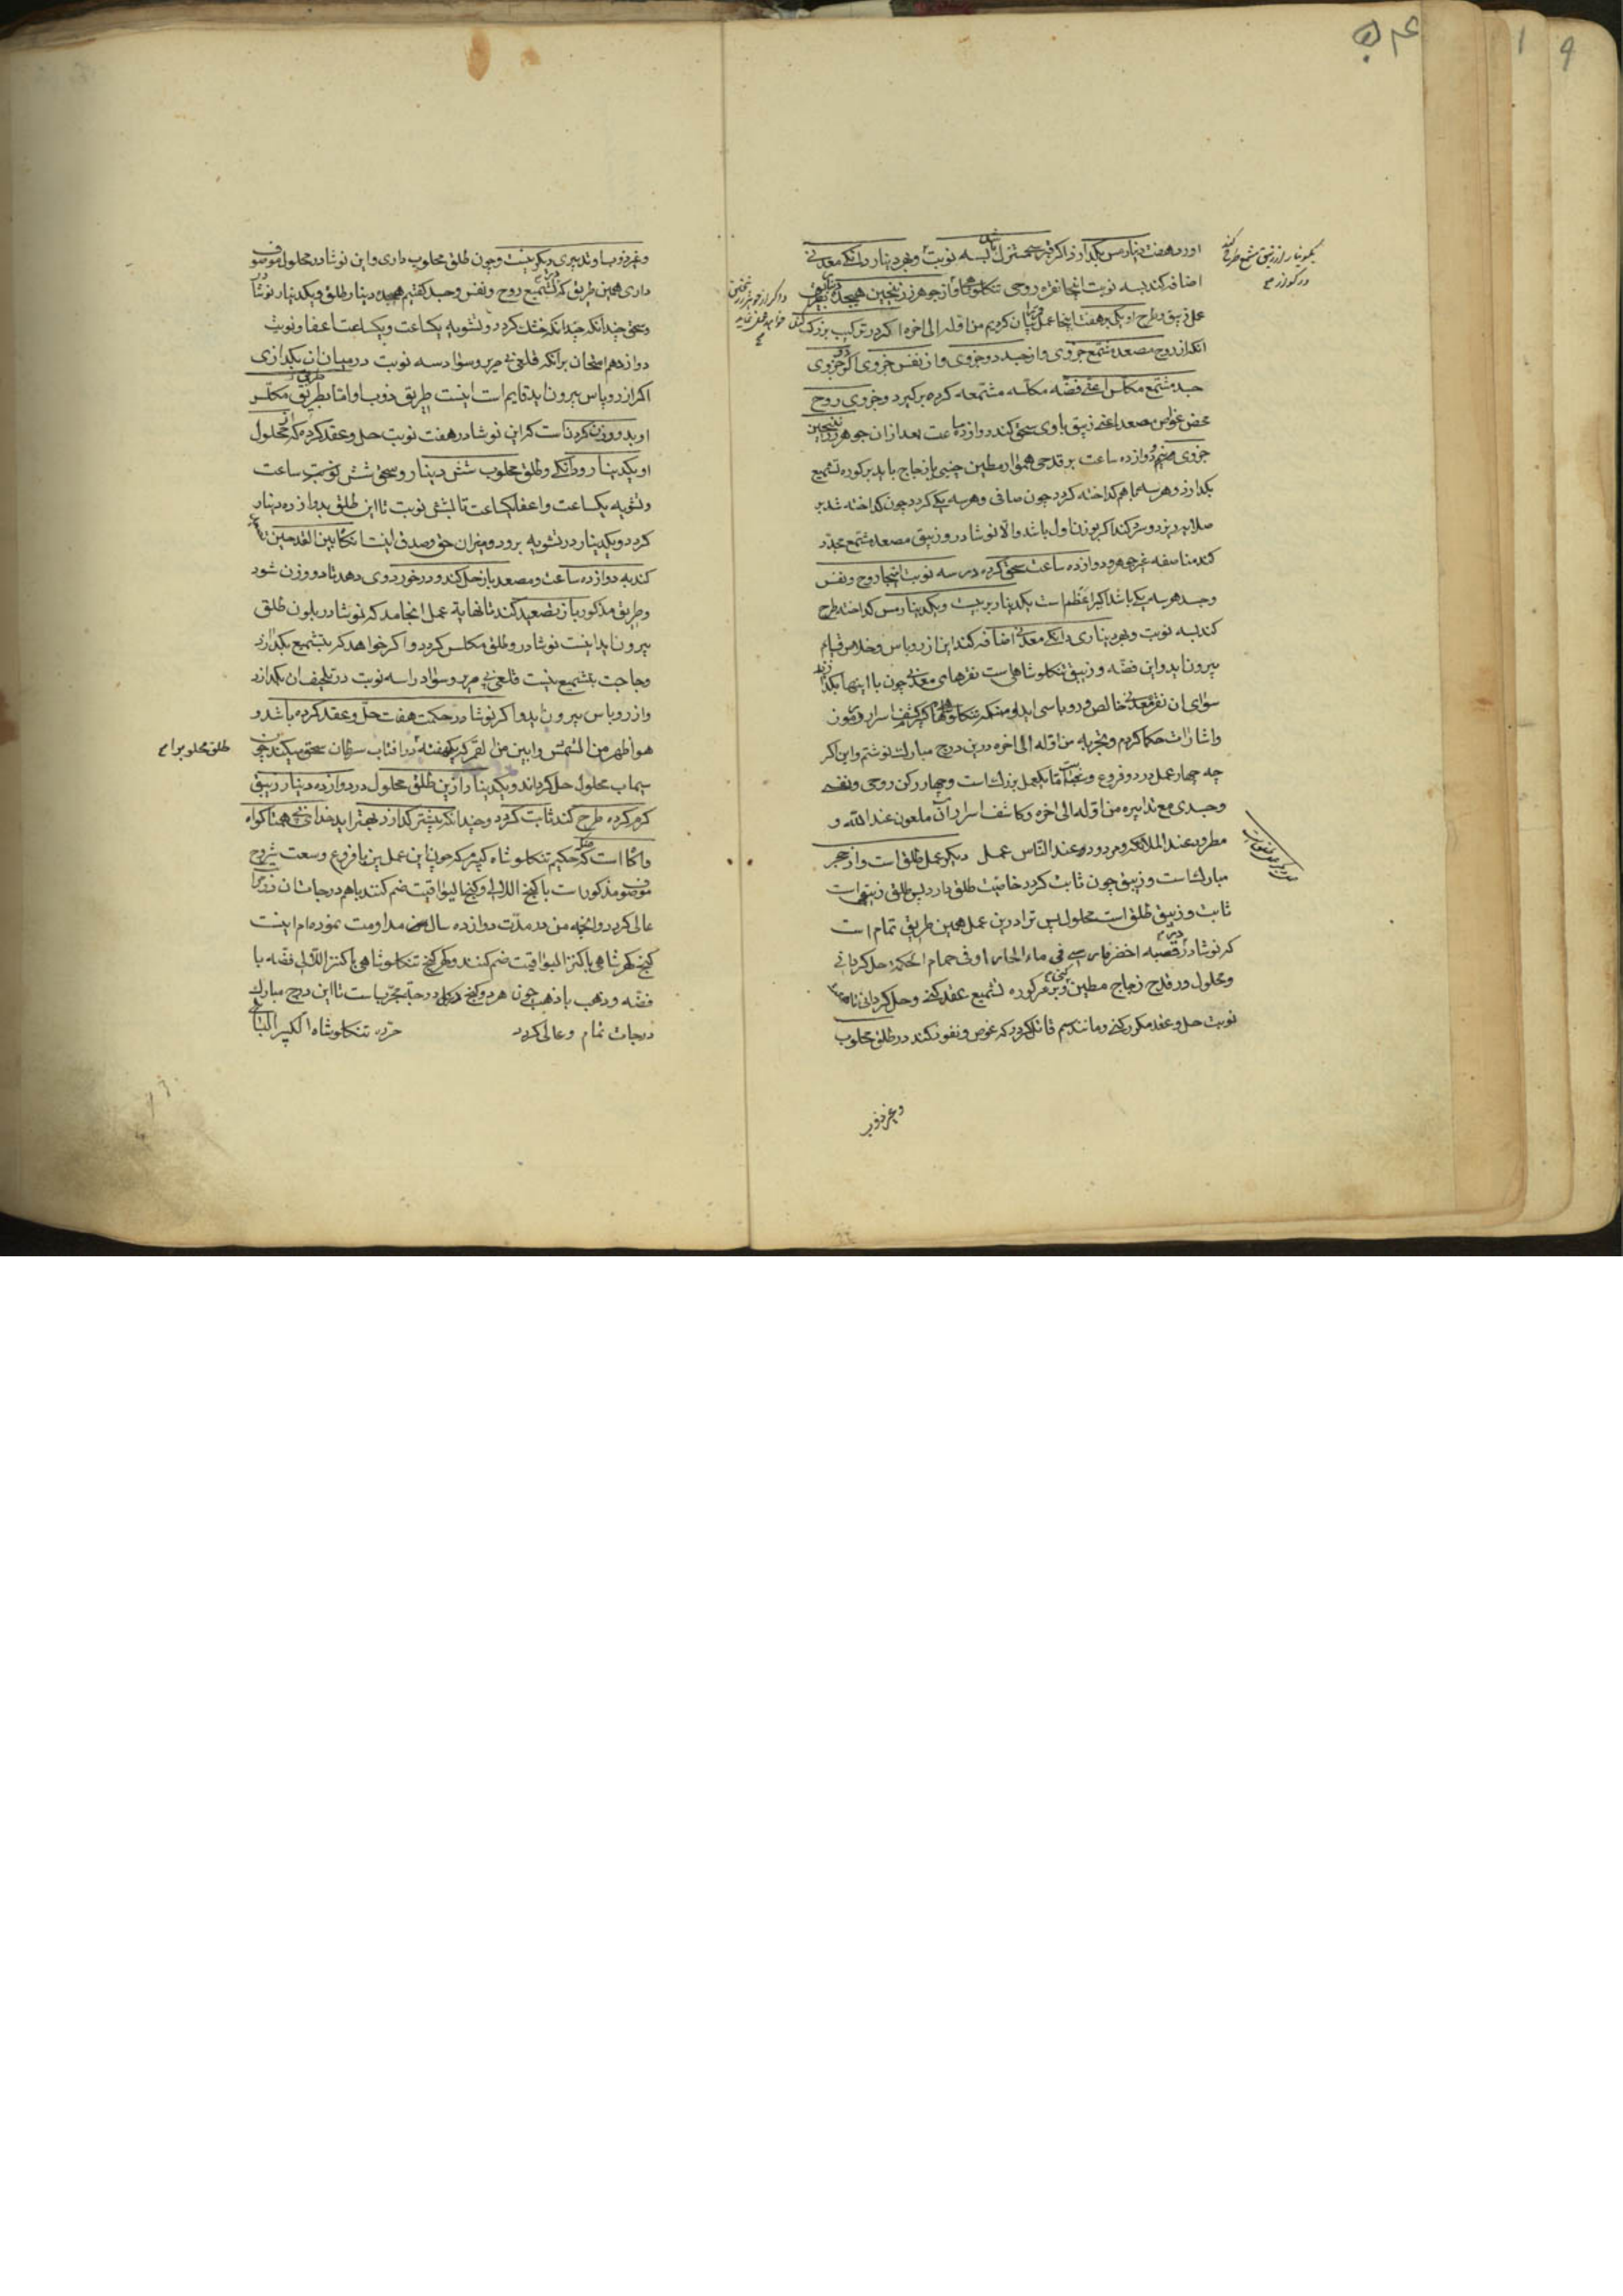 اضافه کند بسه نوبت اینجا نقره روحی تنکلوشاها و از جوهر زرنیخین هیجده
عمل زیبق و طرح او یک بر هفت اینجا عمل بیان کردیم من اوله الی اخره اکر در ترکیب بزرک
انکه از روح مصعد مشمع جزوی و از جسد دو جزوی و از نفس جزوی اکر جزوی
جسد مشمع مکلس اعنی فضه مکلسه مشمعه کرده برکیرد و جزوی روح
محض غواص مصعد اعنی زیبق باوی سحق کند دوازده ساعت بعد از ان جوهر زرنیخین
جزوی دوازده ساعت بر قدحی هموار مطین چینی یا زجاج باید بر کوره تشمیع
بکدازد و هر سه باهم کداخته کردد چون صافی و هر سه یکی کردد چون کداخته شد بر
صلایه ریزد و سرد کند اکر بوزن اول باشد والا نوشادر و زیبق مصعد مشمع مجدد
کند مناصفه غیر جوهر و دوازده ساعت سحق کرده در سه نوبت اینجا روح و نفس
و جسد هر سه یکی باشد اکسیر اعظم است یکدینار بر بیست و یکدینار مس کداخته طرح
کند بسه نوبت و بهر دیناری دانکی معدنی اضافه کند این از روباس و خلاص قیام
بیرون اید و این فضه و زیبق تنکلوشاهاست نقرهای معدنی چون با اینها بکدازند
سوای ان نقره معدنی خالص و روباسی اید و منکه تنکلوشاها کشف اسرار و رموز
و اشارات حکما کردم و تجربه من اوله الی اخره درین درج مبارک نوشتم و این اکر
چه چهار عمل در دو فروع و شعب است اما یکعمل بزرکست و چهار رکن روحی و نفسی
و جسدی مع تدابیره من اوله الی اخره و کاشف اسرار آن ملعون عند الله و
مطرود عند الملائکه و مردود عند الناس عمل دیکر عمل طلق است و از حجر
مبارکست و زیبق چون ثابت کردد خاصیت طلق دارد پس طلق زیبق است
ثابت و زیبق طلق است محلول پس ترا درین عمل همین طریق تمام است
که نوشادر در قصبه اخضر فارسی فی ماء الحار او فی حمام الحکمة حل کردانی
و محلول در قدح زجاج مطین کنی و بر سر کوره تشمیع عقد کنی و حل کردانی تا
نوبت حل و عقد مکرر کنی و مانند سم قاتل کردد که غوص و نفوذ کند در طلق محلوب
و غیر ذوب
و غیر ذوب او تدبیری دیکر نیست و چون طلق محلوب داری و این نوشادر محلول موصوف
داری همین طریق که در تشمیع روح و نفس و جسد کفتیم هیجده دینار طلق و یکدینار نوشادر
و سحق چندانکه چندانکه خشک کردد و تشویه یکساعت و یکساعت اعفا و نوبت
دوازدهم امتحان برانکه قلعی بی صریر و سواد سه نوبت در میان ان بکدازی
اکر از روباس بیرون اید قایم است اینست طریق ذوب او اما بطریق مکلس
او بدو وزن کردنست که این نوشادر هفت نوبت حل و عقد کرده که از محلول
او یکدینار و دانکی و طلق محلوب شش دینار و سحق شش نوبت ساعت
و تشویه یکساعت و اعفا یکساعت تا شش نوبت تا این طلق بدوازده دینار
کردد و یکدینار در تشویه برود و میزان حق و صدق اینست تکتا بین القدحین
کند به دوازده ساعت و مصعد باز حل کند و در خورد وی دهد تا دو وزن شود
و طریق مذکور باز تصعید کند تا نهایة عمل انجامد که نوشادر بلون طلق
بیرون اید اینست نوشادر و طلق مکلس کردد و اکر خواهد که بتشمیع بکدازد
و حاجت بتشمیع نیست قلعی بی صریر و سواد را سه نوبت در تلخیف ان بکدازد
و از روباس بیرون اید و اکر نوشادر حکمت هفت حل و عقد کرده باشد و
هو اظهر من الشمس و ابین من القمر که یکهفته در افتاب سرطان سحق میکند چون
سیماب محلول حل کرداند و یکدینار ازین طلق محلول در دوازده دینار زیبق
کرم کرده طرح کند ثابت کردد و چندانکه بیشتر کدازد بهتر اید خدای بی همتا کواه
و اکاه است که حکیم تنکلوشاه کبیر که چون این عملین با فروع و سعت شروح
موصوف مذکور است با کنج اللالی و کنج الیواقیت ضم کنند با هم درجات ان
عالی کردد و انچه من در مدت دوازده سال مداومت نموده ام اینست
کنج کهر شاهی با کنز الیواقیت ضم کنند و کهر کنج تنکلوشاهی با کنز اللالی فضه با
فضه و ذهب با ذهب چون هر دو کنج درجه مجربات تا این درج مبارک
درجات تمام و عالی کردد حرره تنکلوشاه الکبیر البابلی
طلق محلوب را